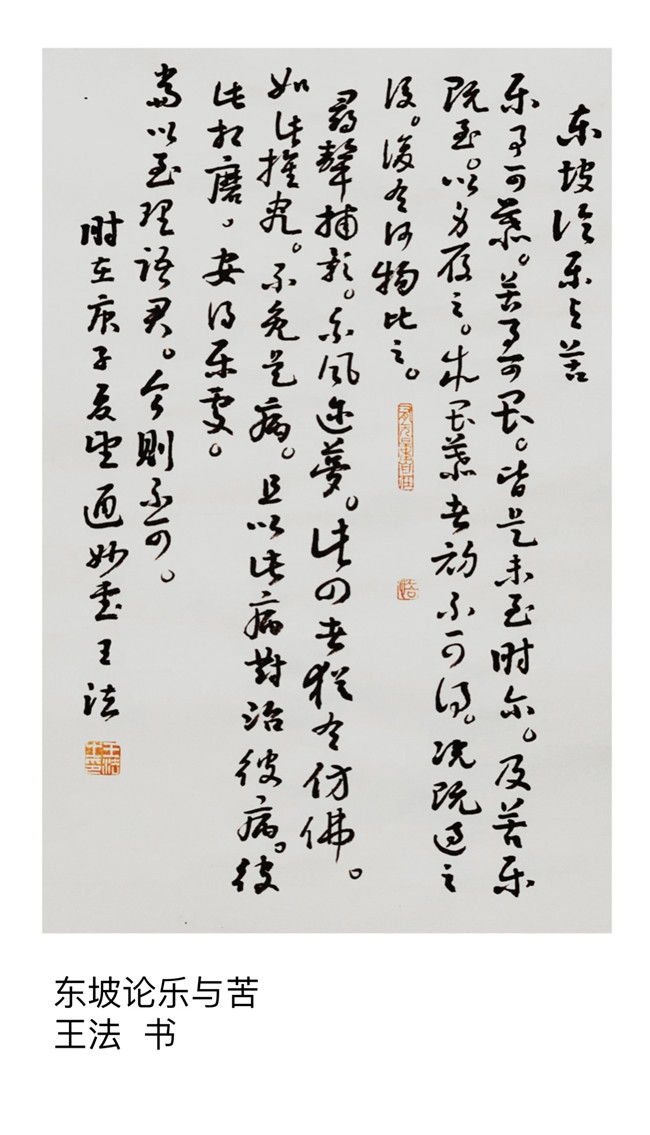 东坡论乐与苦
乐事可慕。苦事可畏。皆是未至时尔。及苦乐
既至。以身履之。求畏慕者初不可得。况既过之
后。复有何物比之。
寻声捕影。系风迹梦。此四者犹有仿佛。
如此推究。不免是病。且以此病对治彼病。彼
此相磨，安得乐处。
当以至理语君。今则不可。
时在庚子夏 通妙 王法
东坡论乐与苦
王法 书